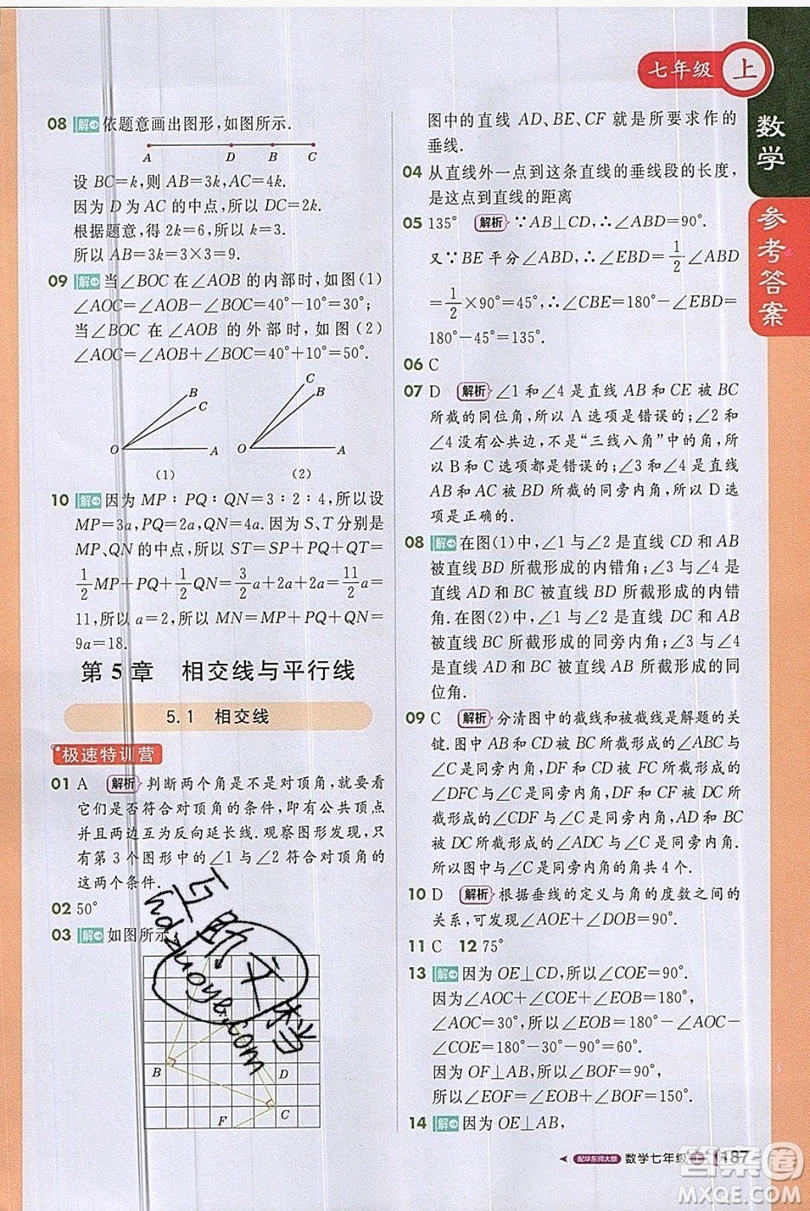 七年级 上
数学
参考答案
08 解 依题意画出图形,如图所示.
A D B C
设 BC=k,则 AB=3k,AC=2k.
因为 D 为 AC 的中点,所以 DC=2k.
根据题意,得 2k=6,所以 k=3.
所以 AB=3×3=9.
09 解 当∠BOC 在∠AOB 的内部时,如图(1)
∠AOC=∠AOB-∠BOC=40°-10°=30°;
当∠BOC 在∠AOB 的外部时,如图(2)
∠AOC=∠AOB+∠BOC=40°+10°=50°.
B C O A B C O A
(1) (2)
10 解 因为 MP∶PQ∶QN=3∶2∶4,所以设
MP=3a,PQ=2a,QN=4a.因为 S、T 分别是
MP、QN 的中点,所以 ST=SP+PQ+QT=
1/2 MP+PQ+1/2 QN=3/2 a+2a+2a=11/2 a=
11,所以 a=2,所以 MN=MP+PQ+QN=
9a=18.
第 5 章 相交线与平行线
5.1 相交线
极速特训营
01 A 解析 判断两个角是不是对顶角,就要看
它们是否符合对顶角的条件,即有公共顶点
并且两边互为反向延长线.观察图形发现,只
有第 3 个图形中的∠1 与∠2 符合对顶角的
这两个条件.
02 50°
03 解 如图所示,
B D C F
图中的直线 AD、BE、CF 就是所要求作的
垂线.
04 从直线外一点到这条直线的垂线段的长度,
是这点到直线的距离
05 135° 解析 ∵AB⊥CD,∴∠ABD=90°.
又∵BE 平分∠ABD,∴∠EBD=1/2∠ABD
=1/2×90°=45°,∴∠CBE=180°-∠EBD=
180°-45°=135°.
06 C
07 D 解析 ∠1 和∠4 是直线 AB 和 CE 被 BC
所截的同位角,所以 A 选项是错误的;∠2 和
∠4 没有公共边,不是“三线八角”中的角,所
以 B 和 C 选项都是错误的;∠3 和∠4 是直线
AB 和 AC 被 BC 所截的同旁内角,所以 D 选
项是正确的.
08 解 在图(1)中,∠1 与∠2 是直线 CD 和 AB
被直线 BD 所截形成的内错角,∠3 与∠4 是
直线 AD 和 BC 被直线 BD 所截形成的内错
角.在图(2)中,∠1 与∠2 是直线 DC 和 AB
被直线 BC 所截形成的同旁内角,∠3 与∠4
是直线 AD 和 BC 被直线 AB 所截形成的同
位角.
09 C 解析 分清图中的截线和被截线是解题的关
键.图中∠BDC 与∠C 是同旁内角,
∠DFC 与∠C 是同旁内角,所形成
的∠CDF 与∠C 是同旁内角,所形
成的∠ADC 与∠C 是同旁内角.
所以图中与∠C 是同旁内角的角共 4 个.
10 D 解析 根据垂线的定义与角的度数之间的
关系,可知∠AOE+∠DOB=90°.
11 C 12 75°
13 解 因为 OE⊥CD,所以∠COE=90°.
因为∠AOC=30°,所以∠BOE=180°-∠AOC-
∠COE=180°-30°-90°=60°.
因为 OF⊥AB,所以∠BOF=90°,所以
∠EOF=∠BOE+∠BOF=60°+90°=150°.
14 解 因为 OE⊥AB,
互助文档
hdzuoye.com
配华东师大版 数学七年级 上 187
答案圈
MXQE.COM